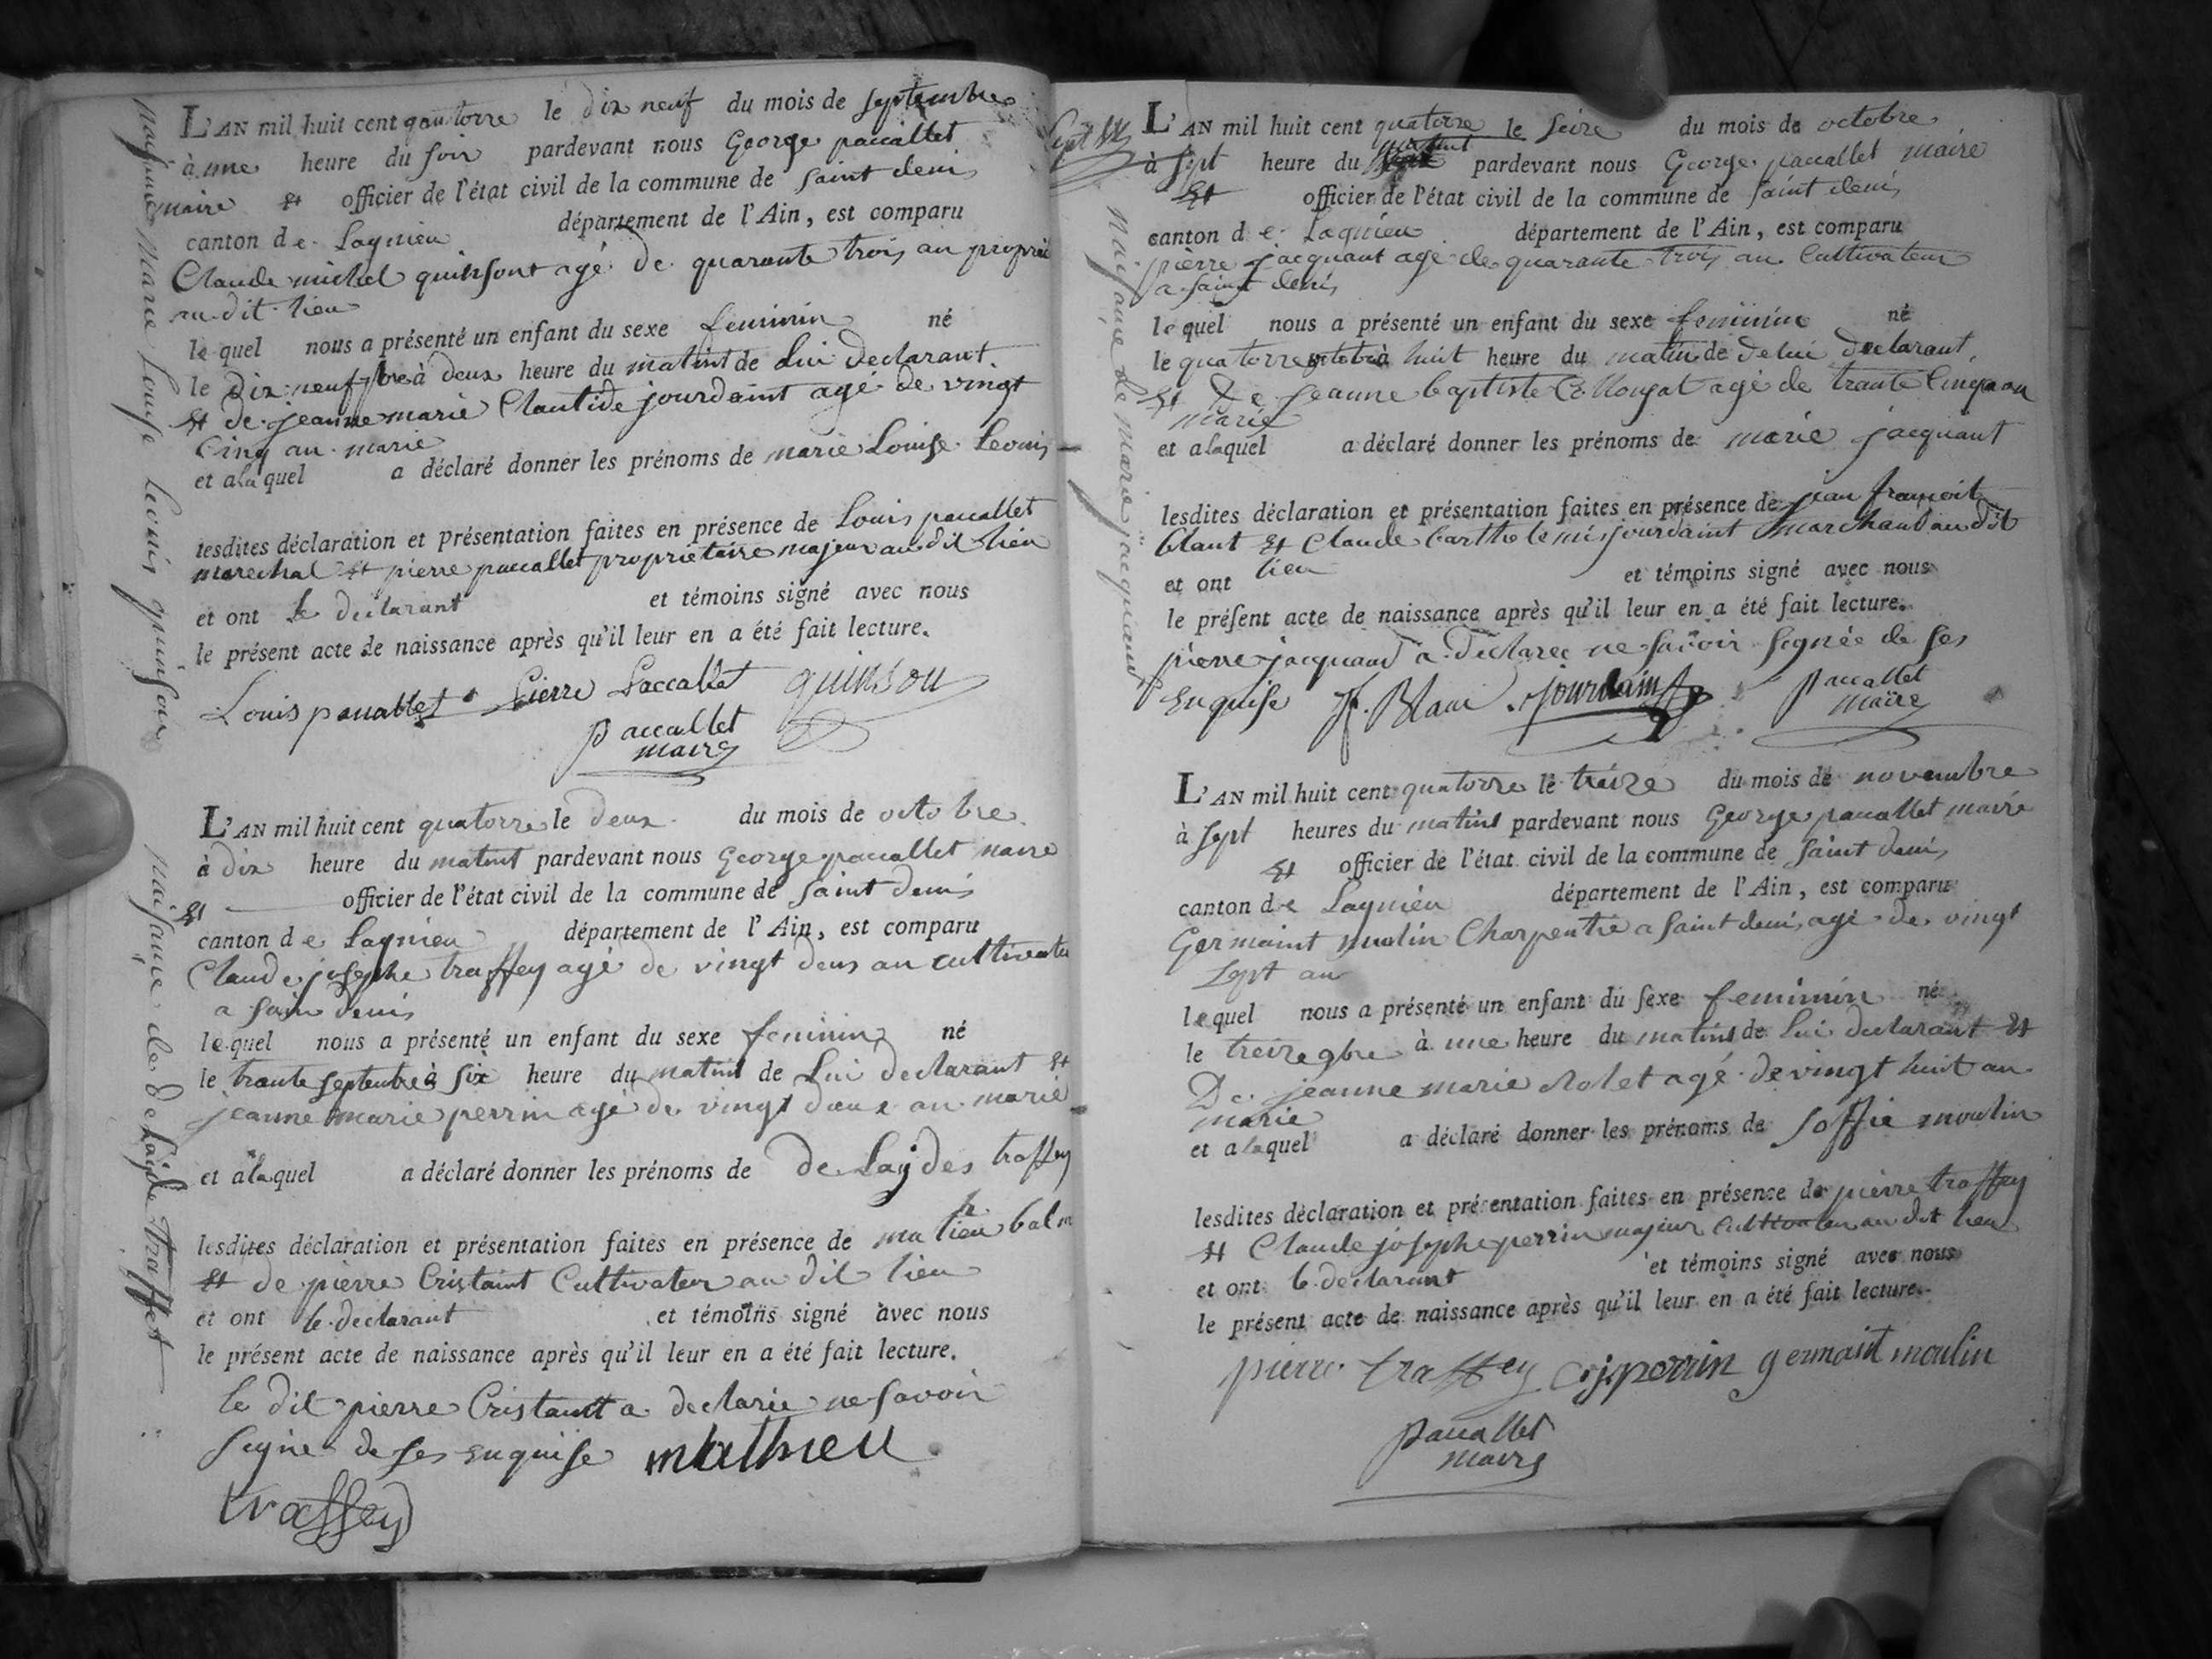 L'AN mil huit cent quatorze le dix neuf du mois de septembre
à une heure du soir pardevant nous George paccallet
maire et officier de l'état civil de la commune de saint denis
canton de Lagnieu département de l'Ain, est comparu
Claude michel quinsont agé de quarante trois an
au dit lieu
lequel nous a présenté un enfant du sexe feminin né
le dix neuf 7bre à deux heure du matint de Lui declarant
et de jeanne marie Clautide jourdaint agé de vingt
Cinq an marie
et a laquel a déclaré donner les prénoms de marie Louise Leonis
lesdites déclaration et présentation faites en présence de Louis paccallet
marechal et pierre paccallet proprietaire majeur au dit lieu
et ont le declarant et témoins signé avec nous
le présent acte de naissance après qu'il leur en a été fait lecture.
Louis paccallet Pierre Paccallet quinson
Paccallet
maire
naisance Marie Louise Leonis quinson
L'AN mil huit cent quatorze le deux du mois de octobre
à dix heure du matint pardevant nous George paccallet maire
et officier de l'état civil de la commune de saint denis
canton de Lagnieu département de l'Ain, est comparu
Claude josephe traffey agé de vingt deux an cultivateu
a sain denis
lequel nous a présenté un enfant du sexe feminin né
le trante septembre à six heure du matint de Lui declarant et
jeanne marie perrin agé de vingt deux an marie
et a laquel a déclaré donner les prénoms de de Laydes traffey
lesdites déclaration et présentation faites en présence de mathieu balm
et de pierre Cristaint Cultivateur au dit lieu
et ont le declarant et témoins signé avec nous
le présent acte de naissance après qu'il leur en a été fait lecture.
le dit pierre Cristaint a declarie ne savoir
signe de ses enquise mathieu
traffey
naisance de delaide Traffet
L'AN mil huit cent quatorze le seize du mois de octobre
à sept heure du matint pardevant nous George paccallet maire
et officier de l'état civil de la commune de saint denis
canton de Lagnieu département de l'Ain, est comparu
pierre jacquant agé de quarante trois an Cultivateur
a saint denis
lequel nous a présenté un enfant du sexe feminine né
le quatorze octobre à huit heure du matin de de lui declarant
et de jeanne baptiste agé de trante Cinq an
marie
et a laquel a déclaré donner les prénoms de marie jacquant
lesdites déclaration et présentation faites en présence de jean françoit
blant et Claude barthelemis jourdaint marchand au dit
lieu
et ont et témoins signé avec nous
le présent acte de naissance après qu'il leur en a été fait lecture.
pierre jacquand a declaree ne savoir signée de ses
enquise jf. Blanc jourdain Paccallet
maire
naisance de marie jacquand
L'AN mil huit cent quatorze le treize du mois de novembre
à sept heures du matint pardevant nous George paccallet maire
et officier de l'état civil de la commune de saint denis
canton de Lagnieu département de l'Ain, est comparu
Germaint mulin Charpentie a saint denis agé de vingt
sept an
lequel nous a présenté un enfant du sexe feminin né
le treize 9bre à une heure du matint de Lui declarant et
De jeanne marie agé de vingt huit an
marie
et a laquel a déclaré donner les prénoms de soffie moulin
lesdites déclaration et présentation faites en présence de pierre traffey
et Claude josephe perrin majeur cultivateur au dit lieu
et ont le declarant et témoins signé avec nous
le présent acte de naissance après qu'il leur en a été fait lecture.
pierre traffey cj perrin germaint moulin
Paccallet
maire